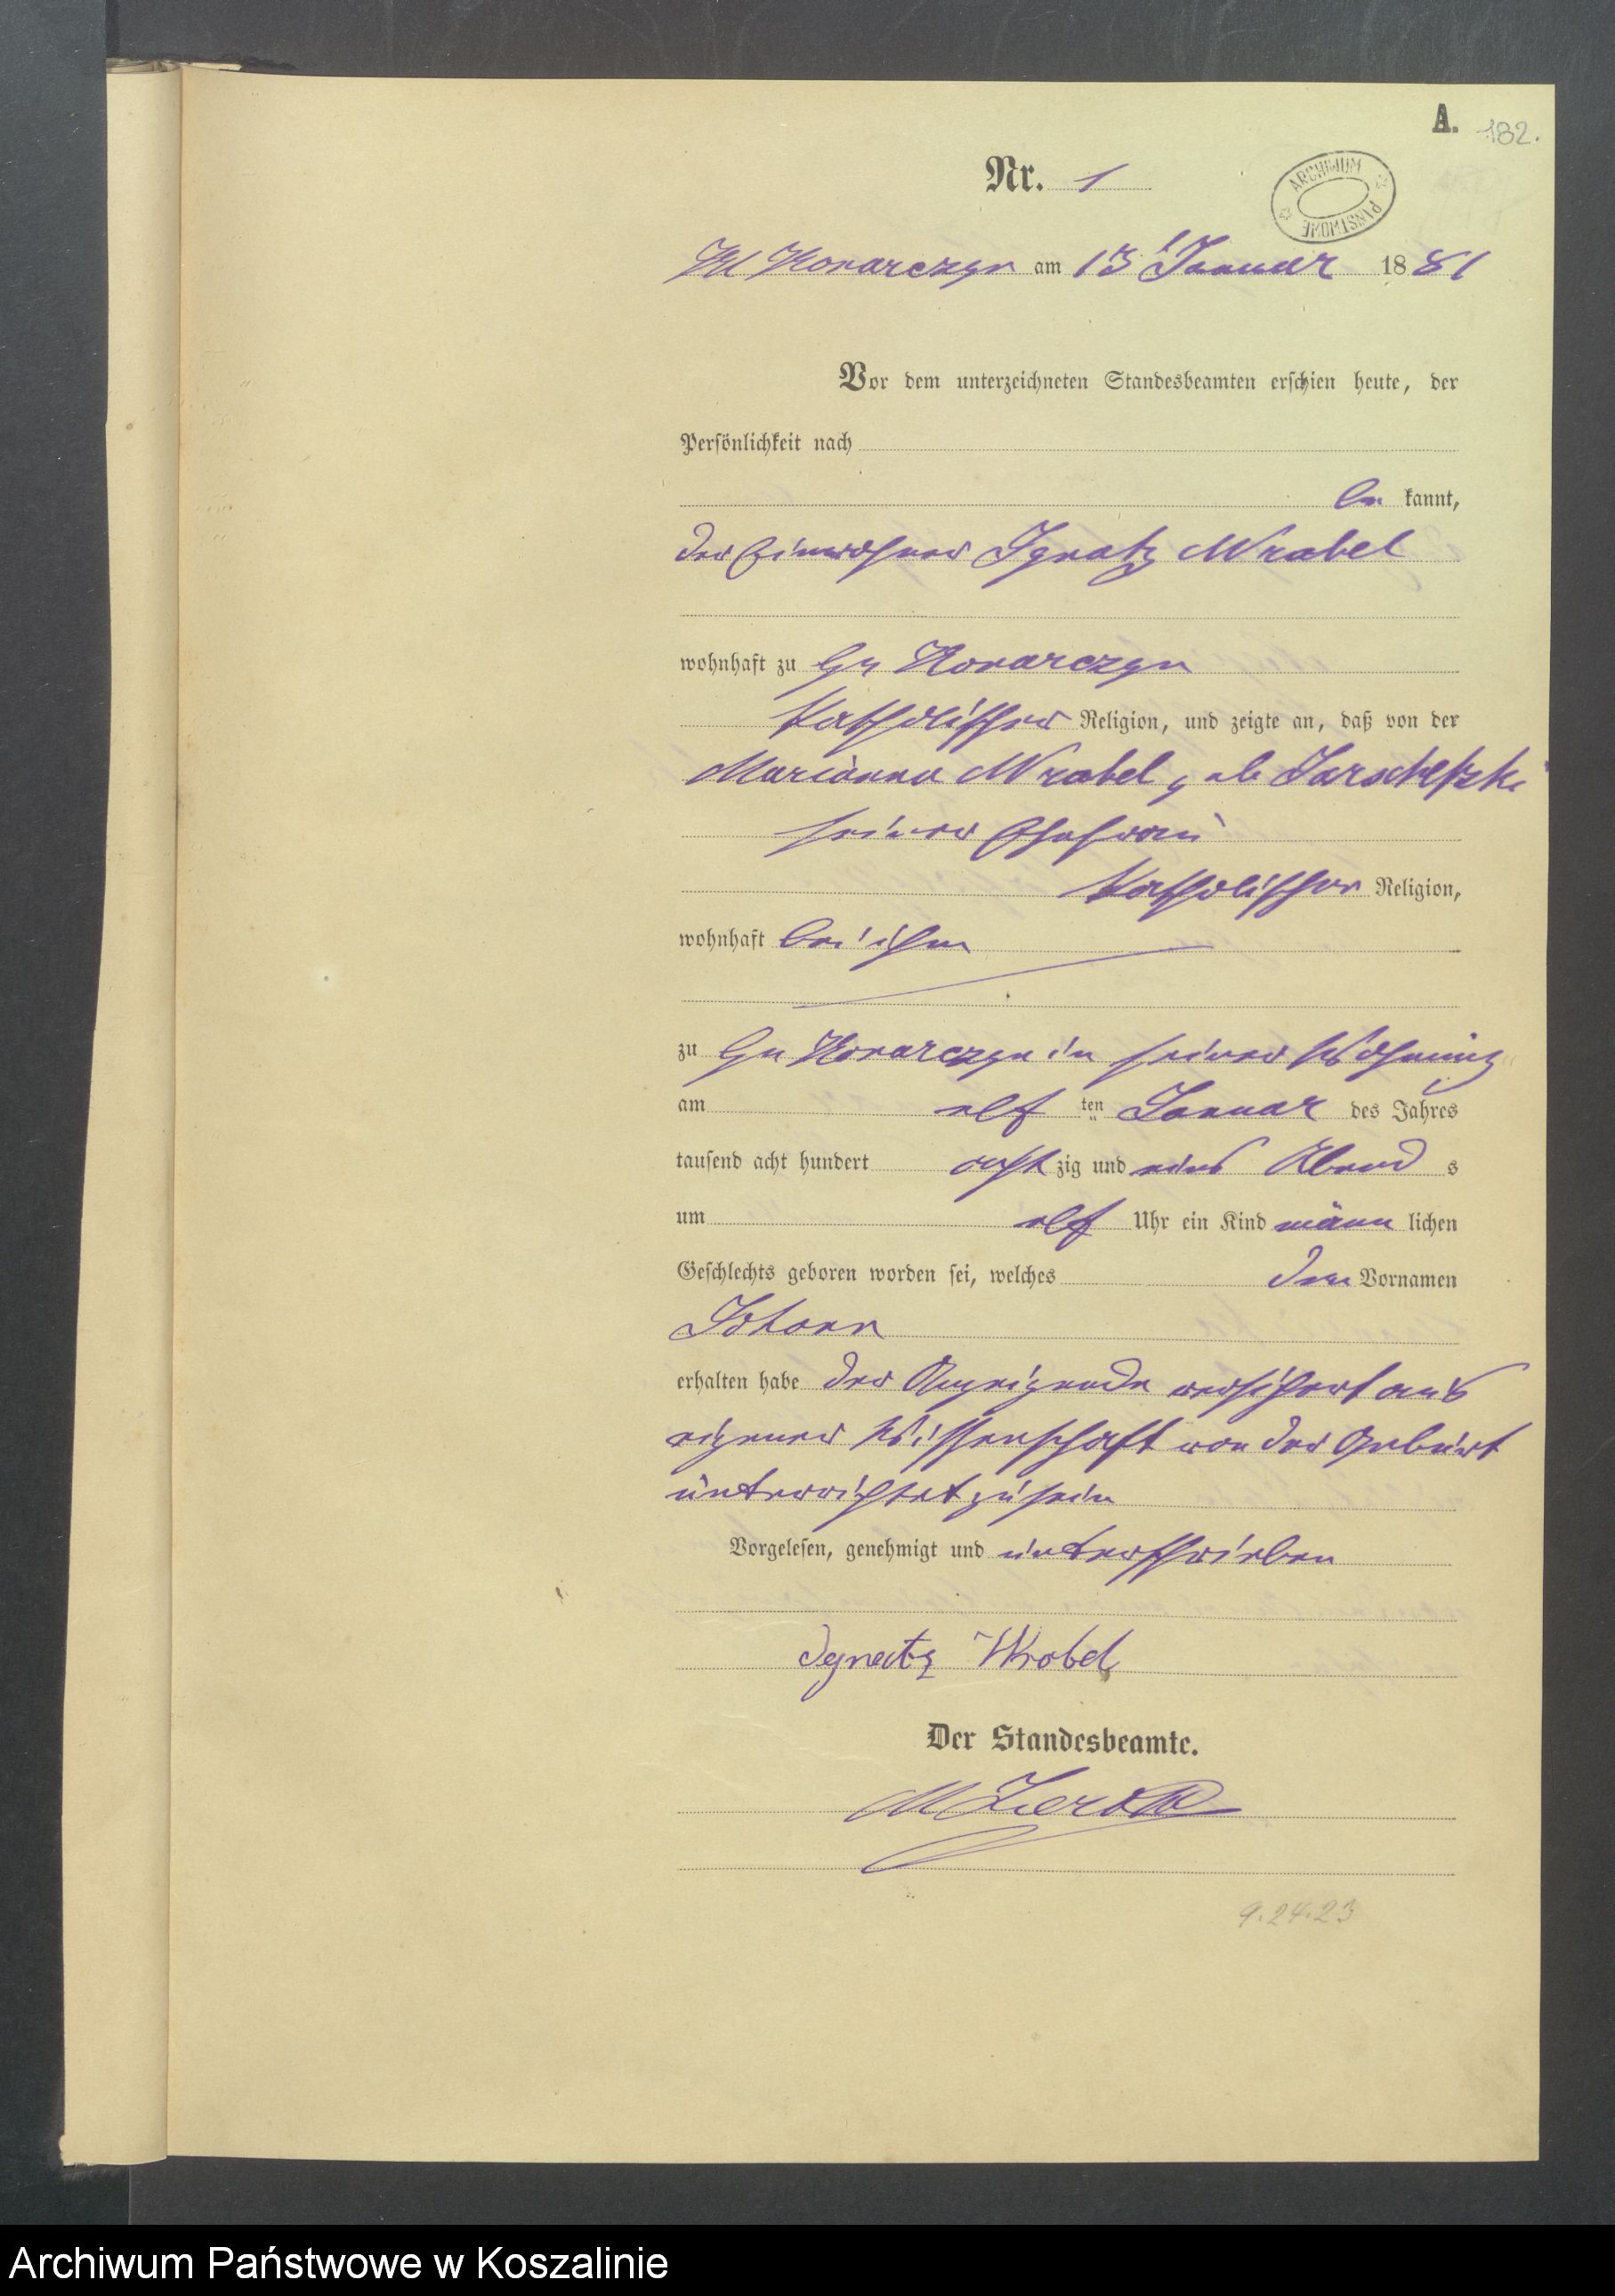 A.
182.
Nr. 1
ARCHIWUM PAŃSTWOWE
Kl Konarczyn am 13 Januar 1881
Vor dem unterzeichneten Standesbeamten erschien heute, der
Persönlichkeit nach
be kannt,
der Einwohner Ignatz Wrabel
wohnhaft zu Gr Konarczyn
katholischer Religion, und zeigte an, daß von der
Marianna Wrabel geb
seiner Ehefrau
katholischer Religion,
wohnhaft bei ihm
zu Gr Konarczyn in seiner Wohnung
am elf ten Januar des Jahres
tausend acht hundert acht zig und eins Abend s
um elf Uhr ein Kind männ lichen
Geschlechts geboren worden sei, welches den Vornamen
Johann
erhalten habe der Anzeigende versichert aus
eigener Wissenschaft von der Geburt
unterrichtet zu sein
Vorgelesen, genehmigt und unterschrieben
Ignatz Wrobel
Der Standesbeamte.
9.24.23
Archiwum Państwowe w Koszalinie